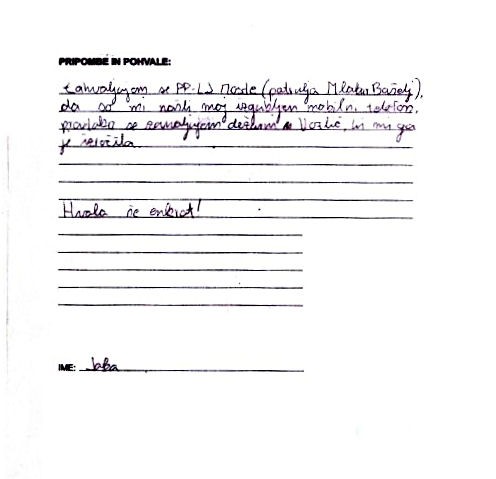 PRIPOMBE IN POHVALE:
Zahvaljujem se PP-LJ Moste (patrulja Mlakar Bašelj),
da so mi našli moj izgubljen mobilni telefon.
se zahvaljujem dežurni Vozlič, ki mi ga
je izročila.
Hvala še enkrat!
IME: Jaka